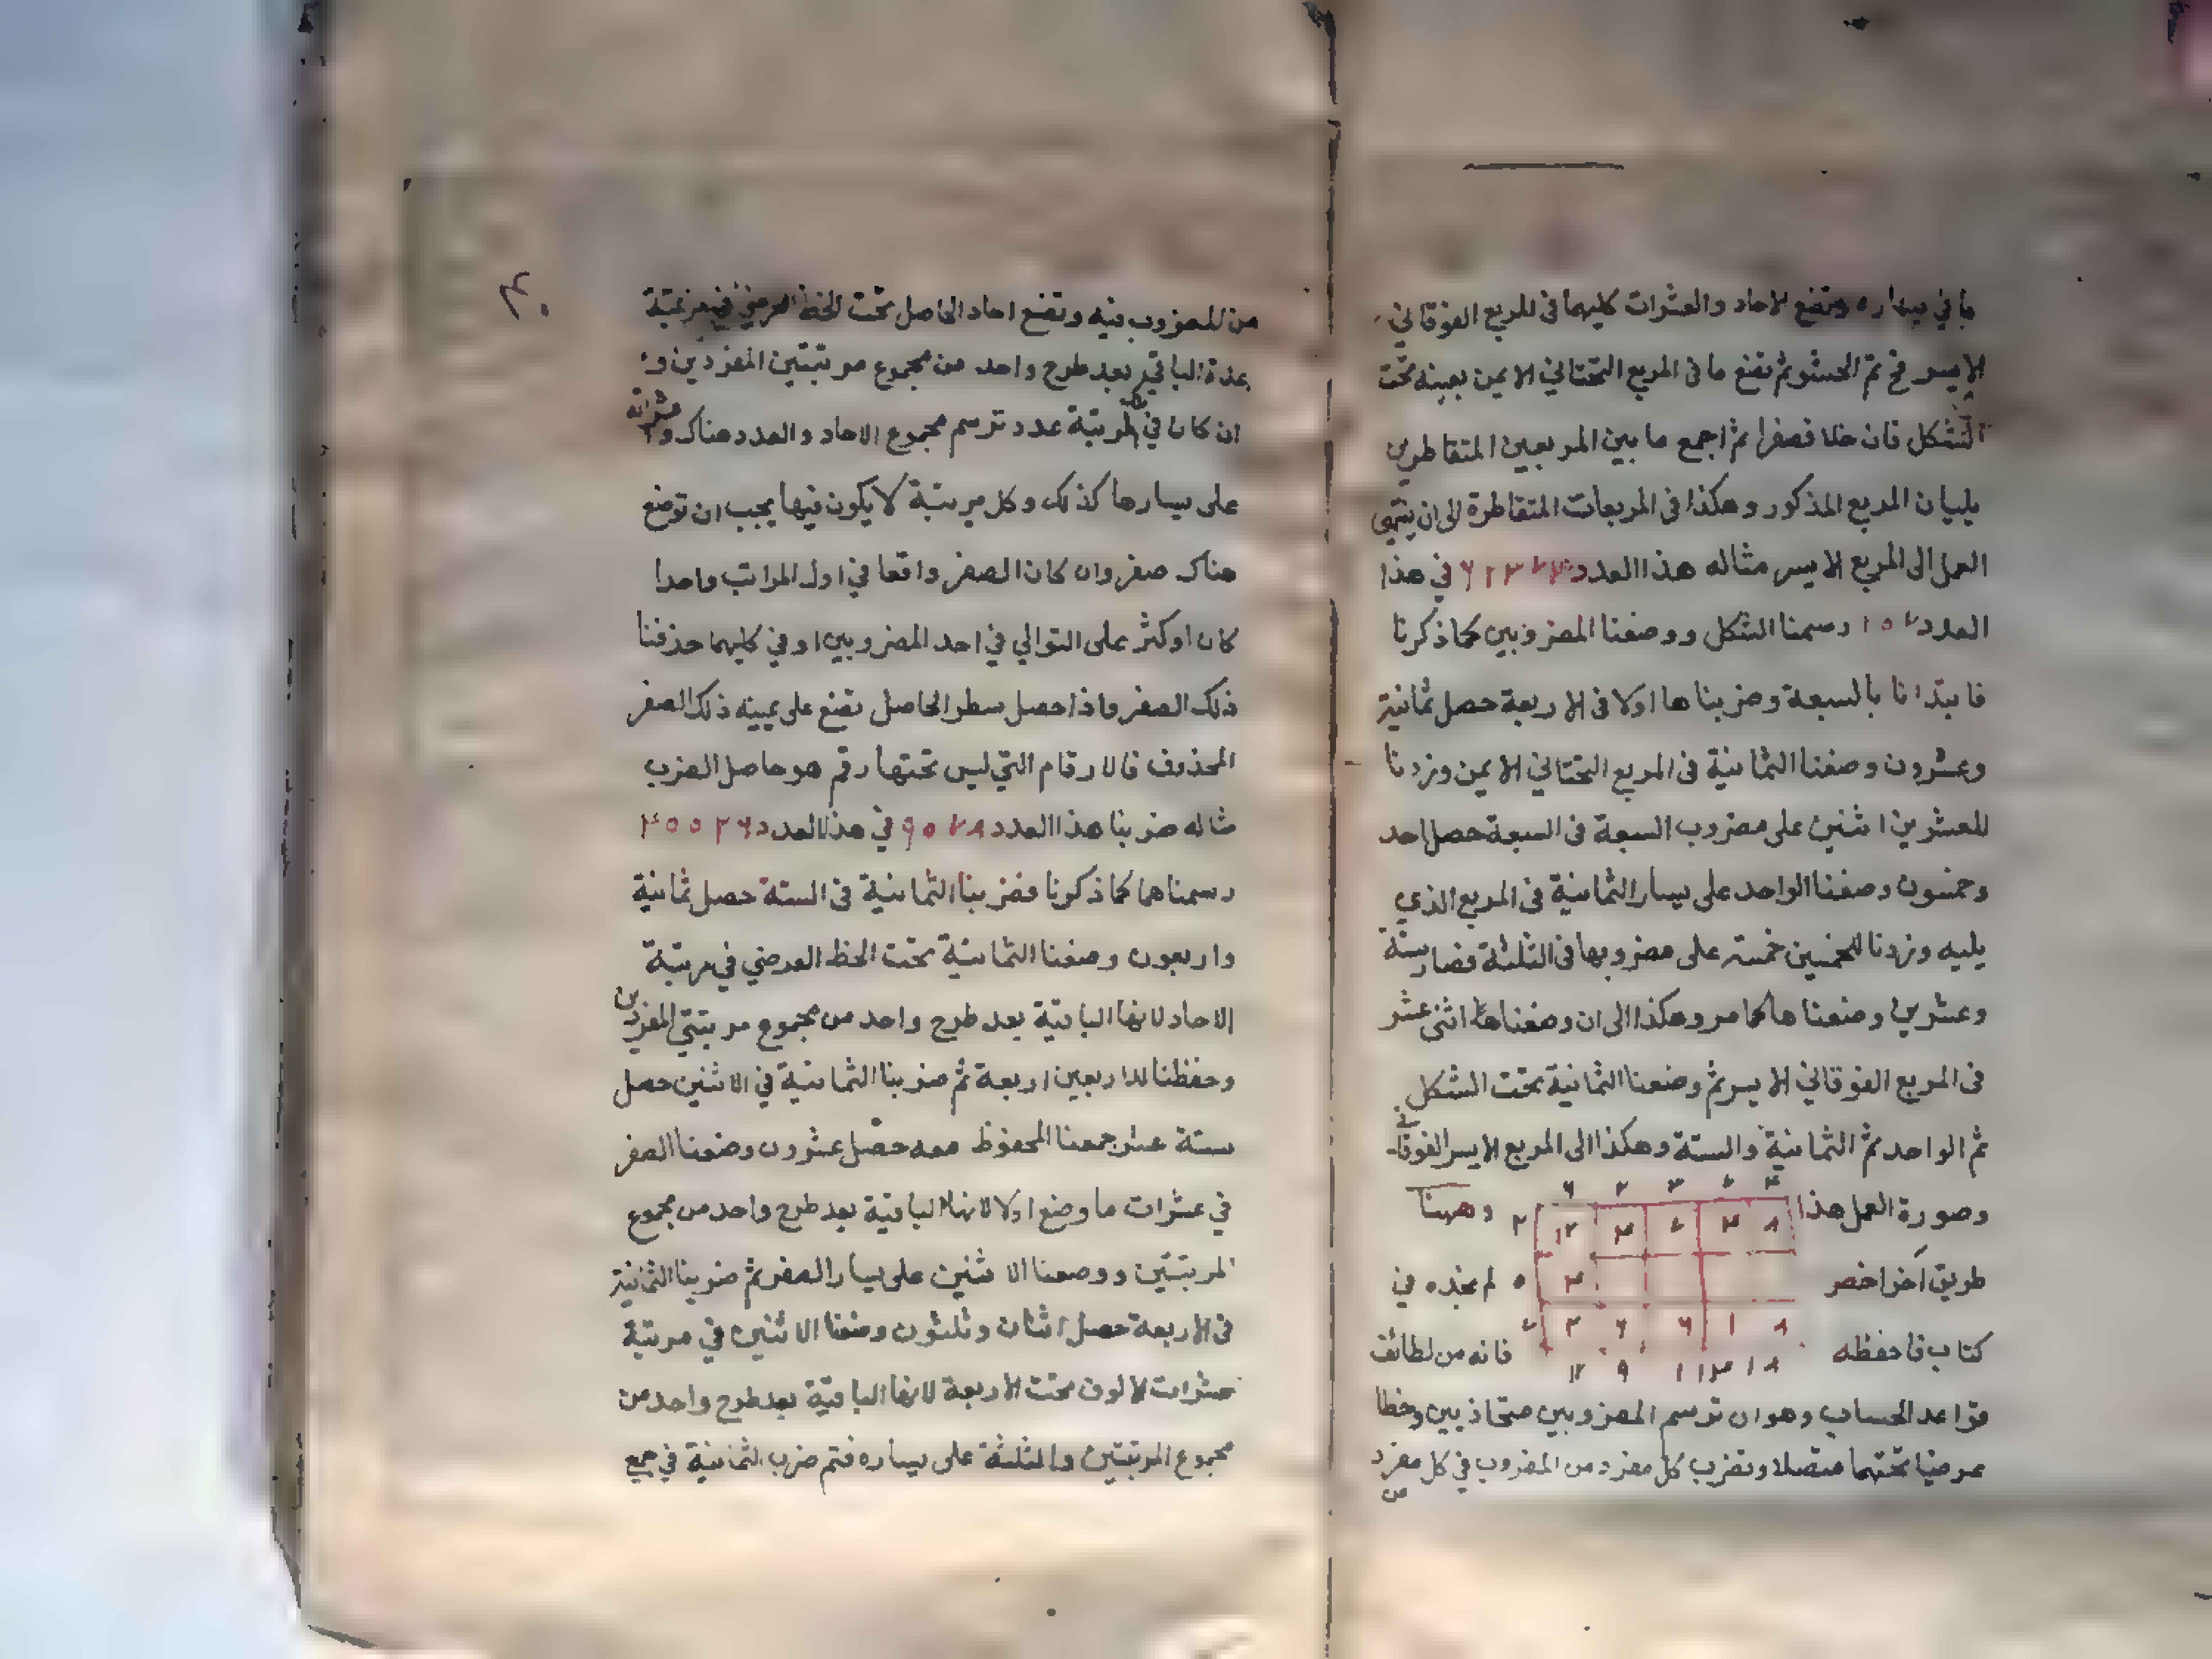 ما في يساره ونضع الاحاد والعشرات كليهما فى المربع الفوقاني
الايسر فح تم الحشو ثم نضع ما فى المربع التحتاني الايمن بعينه تحت
الشكل فان خلا فصفرا ثم اجمع ما بين المربعين المتقاطرين
يليان المربع المذكور وهكذا فى المربعات المتقاطرة الى ان ينتهى
العمل الى المربع الايسر مثاله هذا العدد ٦٢٣٧٤ في هذا
العدد ٢٥٧ رسمنا الشكل ووضعنا المضروبين كما ذكرنا
فابتدانا بالسبعة وضربناها اولا فى الاربعة حصل ثمانية
وعشرون وضعنا الثمانية فى المربع التحتاني الايمن وزدنا
للعشرين اثنين على مضروب السبعة فى السبعة حصل احد
وخمسون وضعنا الواحد على يسار الثمانية فى المربع الذي
يليه وزدنا للخمسين خمسة على مضروبها فى الثلثة فصار ستة
وعشرين وضعناها كما مر وهكذا الى ان وضعنا اثنى عشر
فى المربع الفوقاني الايسر ثم وضعنا الثمانية تحت الشكل
ثم الواحد ثم الثمانية والستة وهكذا الى المربع الايسر الفوقاني
٦ ٢ ٣ ٧ ٤
وصورة العمل هذا ٢ ١٢ ٤ ٧ ٤ ٨ وههنا
طريق آخر اخصر ٥ ٣ لم نجده في
٧ ٤ ٦ ٦ ١ ٨
كتاب فاحفظه فانه من لطائف
قواعد الحساب وهو ان ترسم المضروبين متحاذيين وخطا
عرضيا تحتهما متصلا وتضرب كل مفرد من المضروب في كل مفرد
من
٤٠
من المضروب فيه وتضع احاد الحاصل تحت الخط العرضي في مرتبة
بعدة الباقي بعد طرح واحد من مجموع مرتبتين المفردين و
ان كان في تلك المرتبة عدد ترسم مجموع الاحاد والعدد هناك وعشراته
على يسارها كذلك وكل مرتبة لا يكون فيها يجب ان توضع
هناك صفر وان كان الصفر واقعا في اول المراتب واحدا
كان او كثر على التوالي في احد المضروبين او في كليهما حذفنا
ذلك الصفر فاذا حصل سطر الحاصل نضع على يمينه ذلك الصفر
المحذوف فالارقام التي ليس تحتها رقم هو حاصل الضرب
مثاله ضربنا هذا العدد ٩٥٧٨ في هذا العدد ٤٥٥٢٦
رسمناهما كما ذكرنا فضربنا الثمانية فى الستة حصل ثمانية
واربعون وضعنا الثمانية تحت الخط العرضي في مرتبة
الاحاد لانها الباقية بعد طرح واحد من مجموع مرتبتي المفردين
وحفظنا للاربعين اربعة ثم ضربنا الثمانية في الاثنين حصل
ستة عشر جمعنا المحفوظ معه حصل عشرون وضعنا الصفر
في عشرات ما وضع اولا لانها الباقية بعد طرح واحد من مجموع
المرتبتين ووضعنا الاثنين على يسار الصفر ثم ضربنا الثمانية
فى الاربعة حصل اثنان وثلثون وضعنا الاثنين في مرتبة
عشرات الالوف تحت الاربعة لانها الباقية بعد طرح واحد من
مجموع المرتبتين والثلثة على يساره فتم ضرب الثمانية في جميع